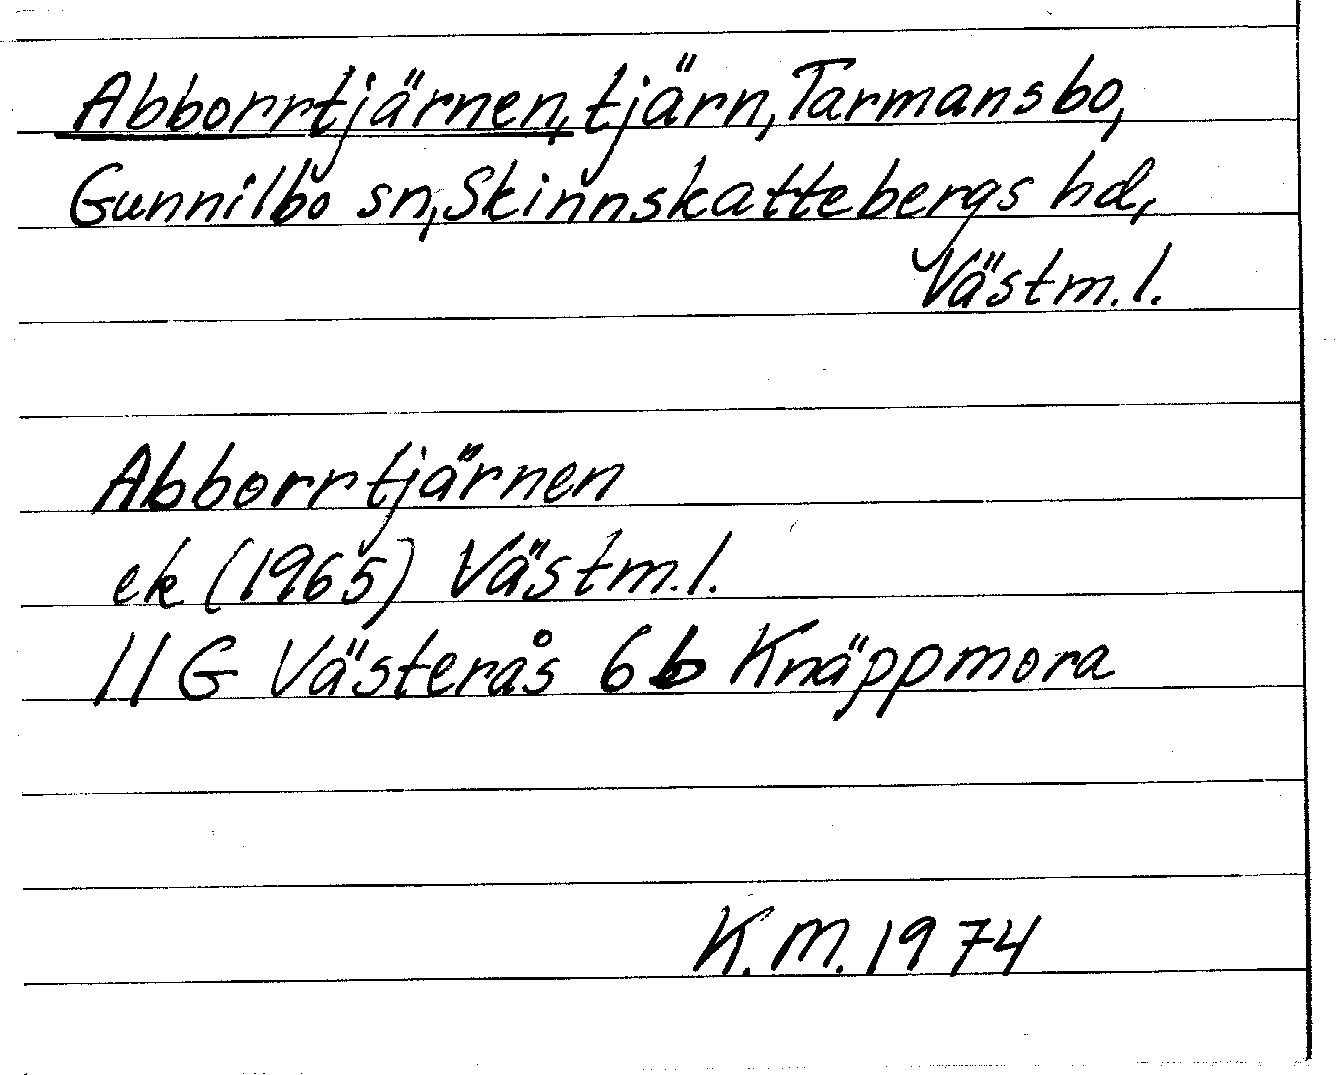 Abborrtjärnen, tjärn, Tarmansbo,
Gunnilbo sn, Skinnskattebergs hd,
Västm.l.
Abborrtjärnen
ek (1965) Västm.l.
11G Västerås 6b Knäppmora
K.M. 1974